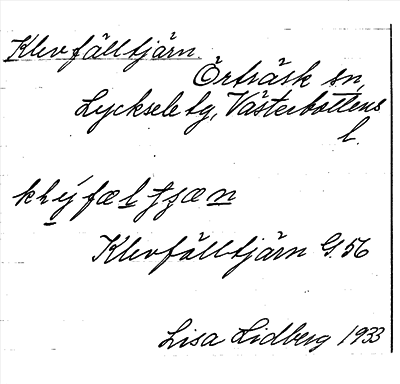 Klevfälltjärn
Örträsk sn,
Lycksele tg, Västerbottens
l.
Klevfälltjärn G. 56
Lisa Lidberg 1933